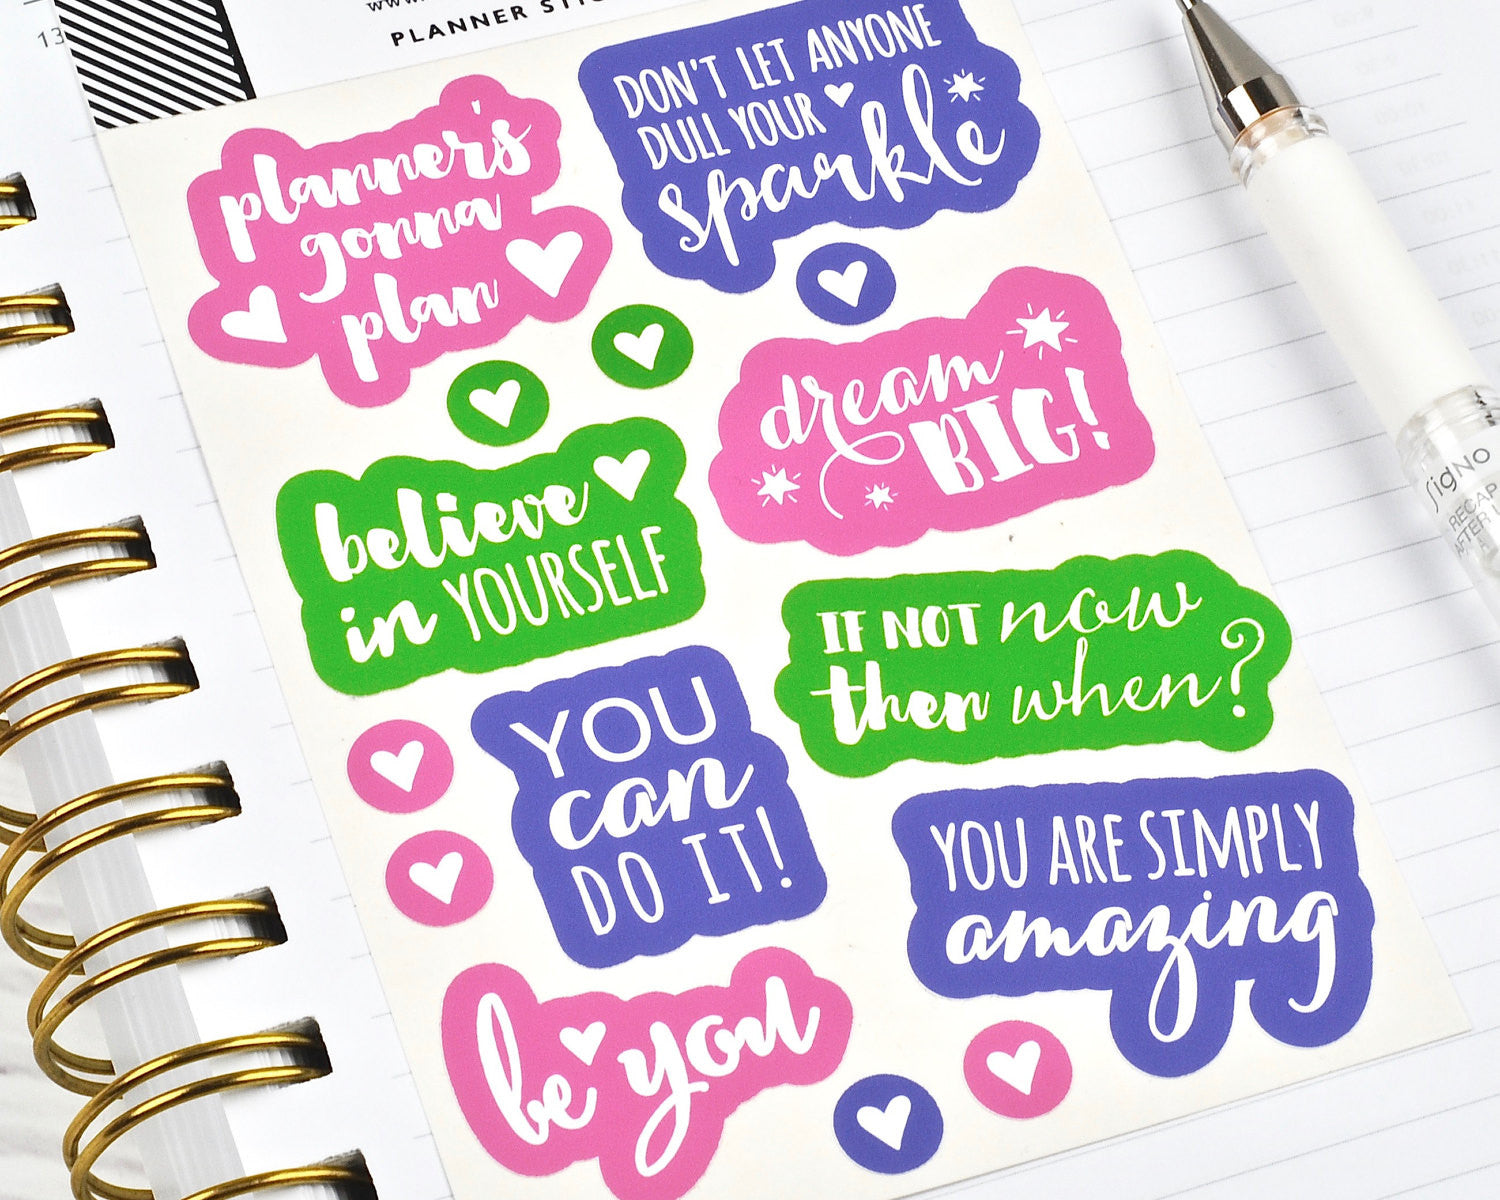 PLANNER
planner's
gonna
plan
DON'T LET ANYONE
DULL YOUR
sparkle
dream
BIG!
believe
in YOURSELF
IF NOT now
then when?
YOU
can
DO IT!
YOU ARE SIMPLY
amazing
be you
sigNo